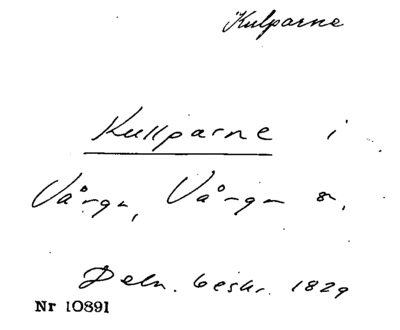 Kulparne
Kullparne i
Vånga, Vånga sn,
Deln. beskr. 1829
Nr 10891